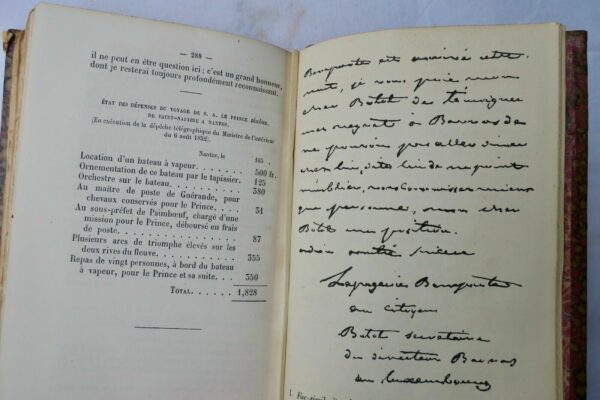 — 288 —
il ne peut en être question ici; c'est un grand honneur,
dont je resterai toujours profondément reconnaissant.
ÉTAT DES DÉPENSES DU VOYAGE DE S. A. LE PRINCE JÉRÔME,
DE SAINT-NAZAIRE A NANTES.
(En exécution de la dépêche télégraphique du Ministre de l'Intérieur
du 6 août 1852)
Nantes, le 185 .
Location d'un bateau à vapeur. . . . . . 500 fr.
Ornementation de ce bateau par le tapissier. 125
Orchestre sur le bateau. . . . . . . . 380
Au maître de poste de Guérande, pour
chevaux conservés pour le Prince. . . . 51
Au sous-préfet de Paimbœuf, chargé d'une
mission pour le Prince, déboursé en frais
de poste. . . . . . . . . . . . 87
Plusieurs arcs de triomphe élevés sur les
deux rives du fleuve. . . . . . . . 355
Repas de vingt personnes, à bord du bateau
à vapeur, pour le Prince et sa suite. . . . 350
TOTAL. . . . . . 1,828
Bonaparte est arrivé cette
nuit, je vous prie mon
cher Botot de témoigner
mes regrets à Barras de
ne pouvoir pas aller dîner
chez lui, dites lui de ne point
m'oublier, vous connaissez mieux
que personne, mon cher
Botot ma position.
adieu amitié sincère
Lapagerie Bonaparte
au citoyen
Botot secrétaire
du directeur Barras
au Luxembourg